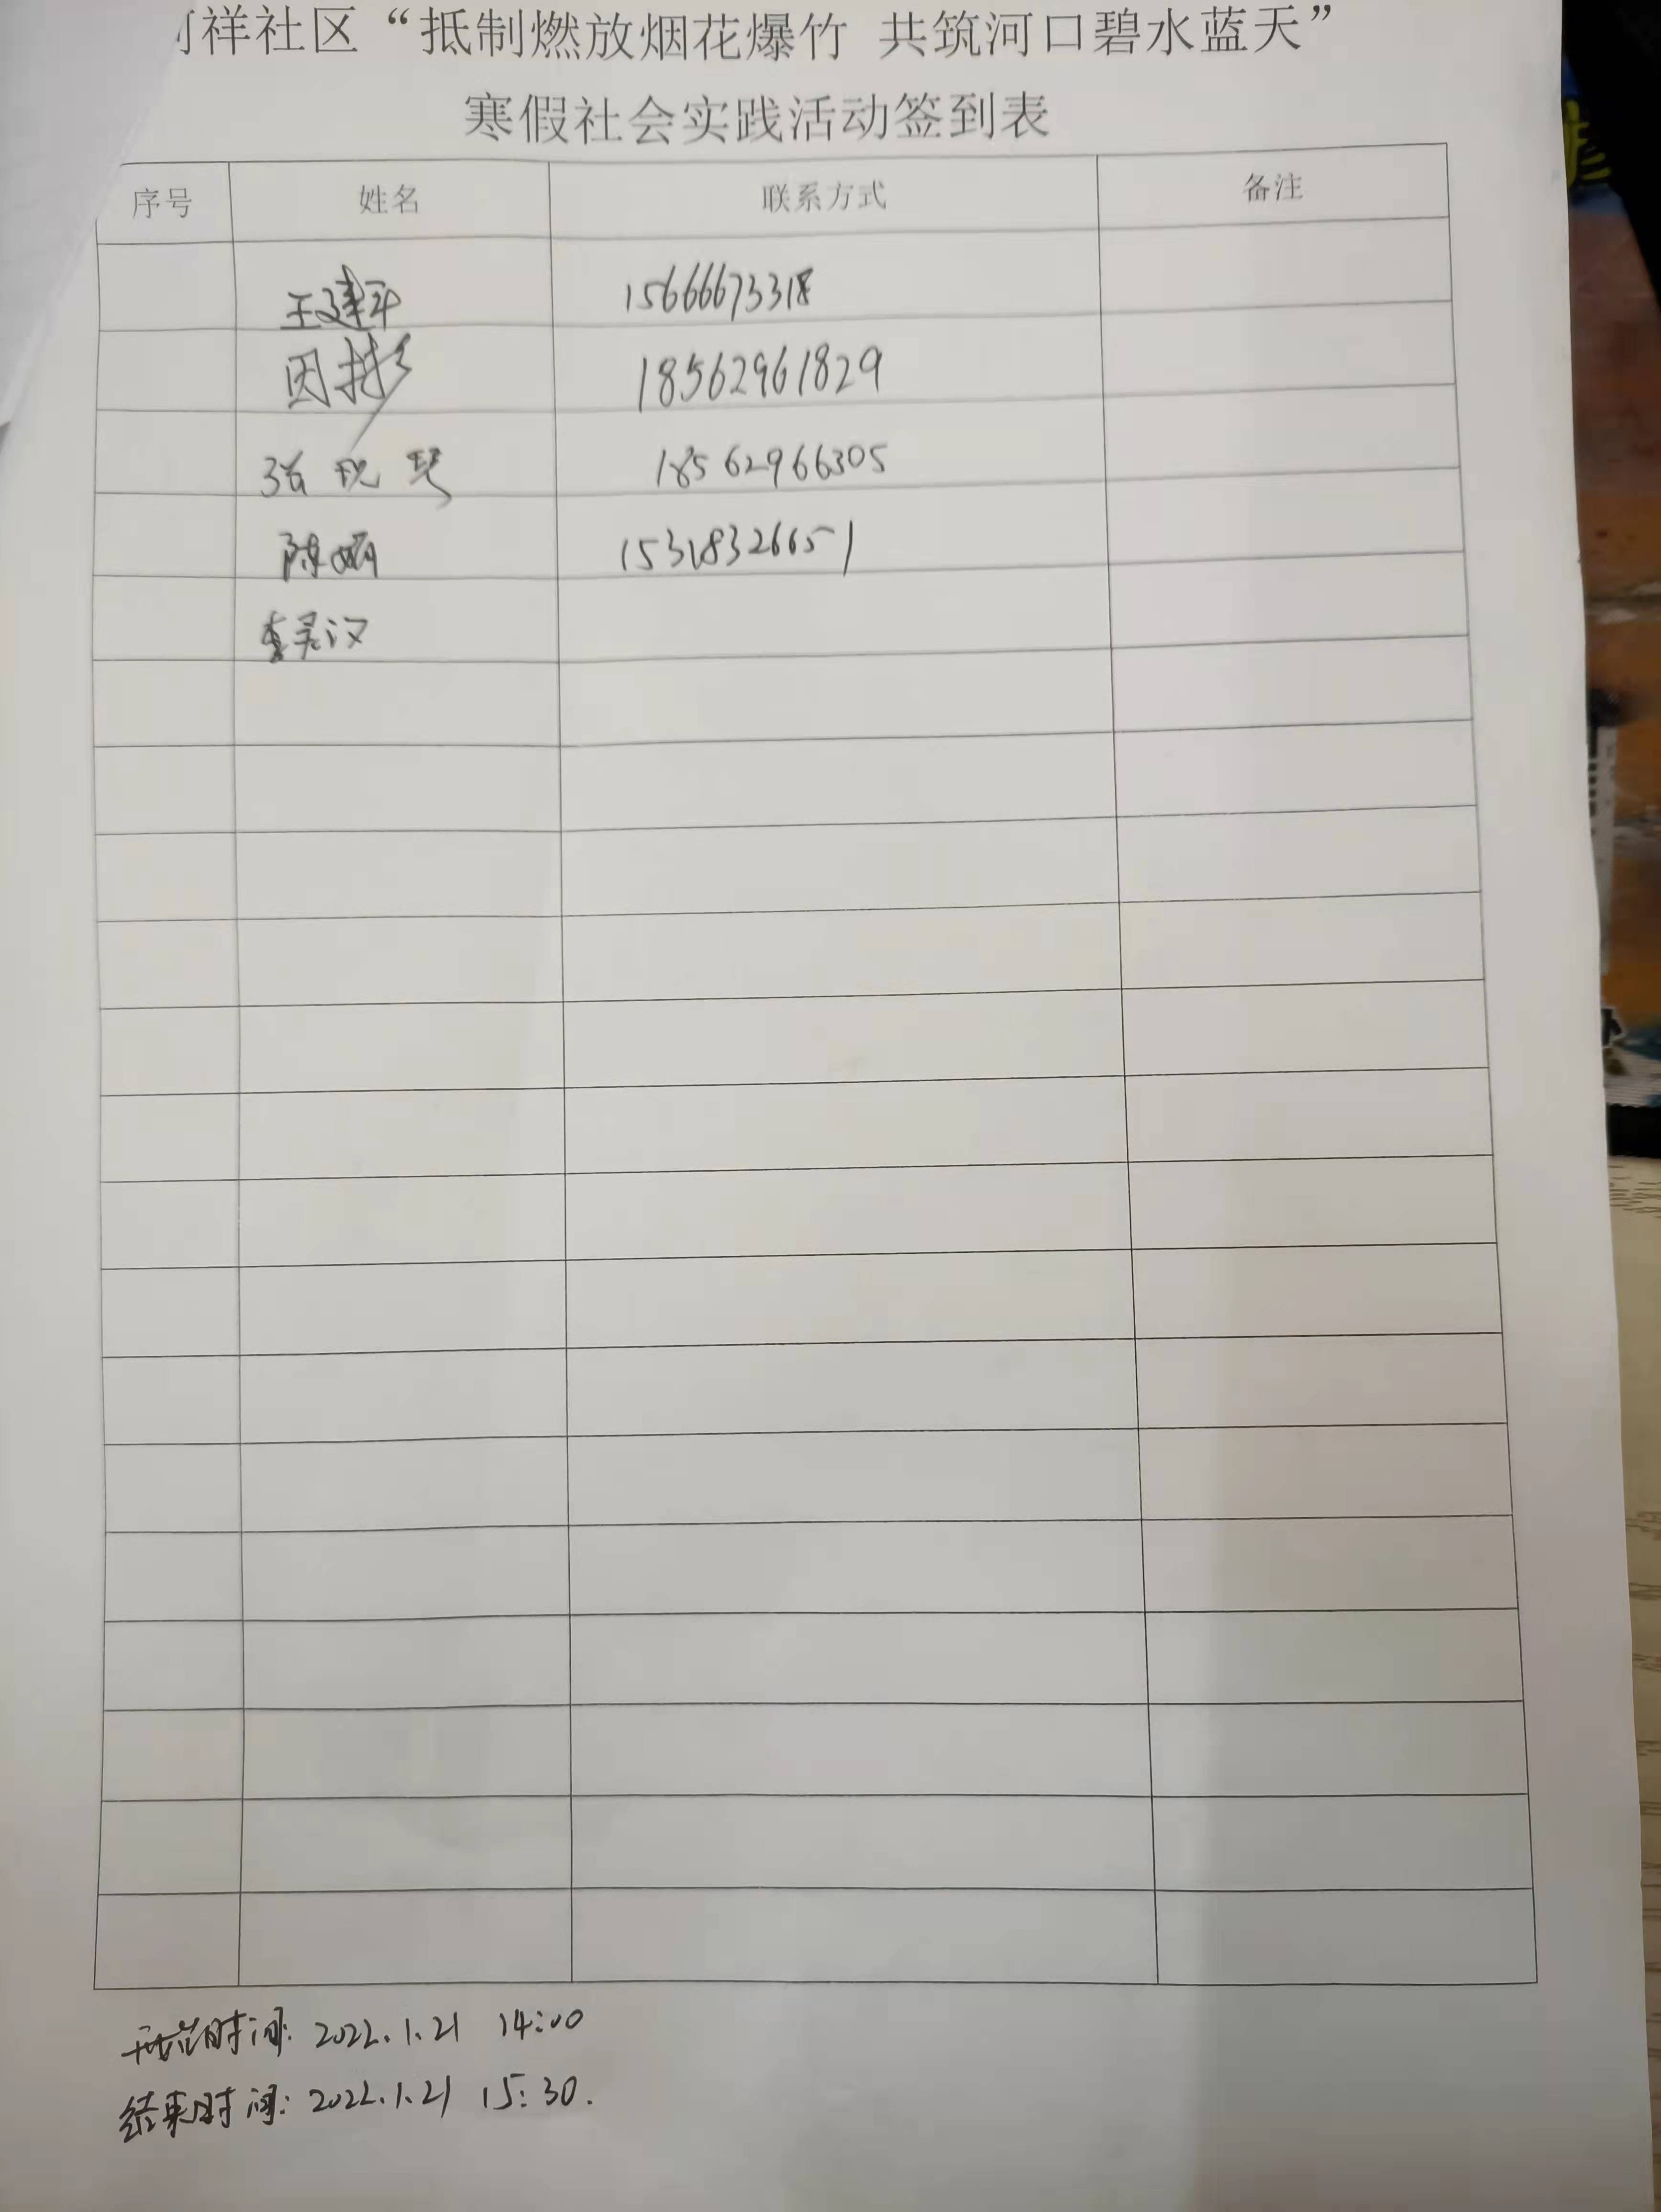 祥社区“抵制燃放烟花爆竹 共筑河口碧水蓝天”
寒假社会实践活动签到表
序号 姓名 联系方式 备注
王建平 15666673318
因彬 18562961829
张现琴 18562966305
陈娟 15318326651
李灵汉
开始时间: 2022.1.21 14:00
结束时间: 2022.1.21 15:30.